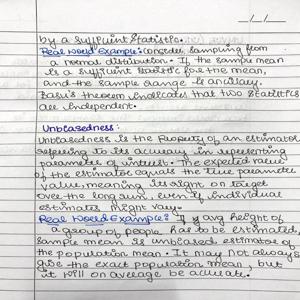 by a sufficient statistic.
Real World Example: Consider sampling from
a normal distribution. If the sample mean
is a sufficient statistic for the mean,
and the sample range is ancillary.
Basu's theorem indicates that two statistics
are independent.
Unbiasedness:
Unbiasedness is the property of an estimator
referring to its accuracy in representing
parameter of interest. The expected value
of the estimator equals the true parameter
value, meaning its right on target
over the long run, even if individual
estimates might vary.
Real World Example: If avg height of
a group of people has to be estimated,
sample mean is unbiased estimator of
the population mean. It may not always
give the exact population mean, but
it will on average be accurate.